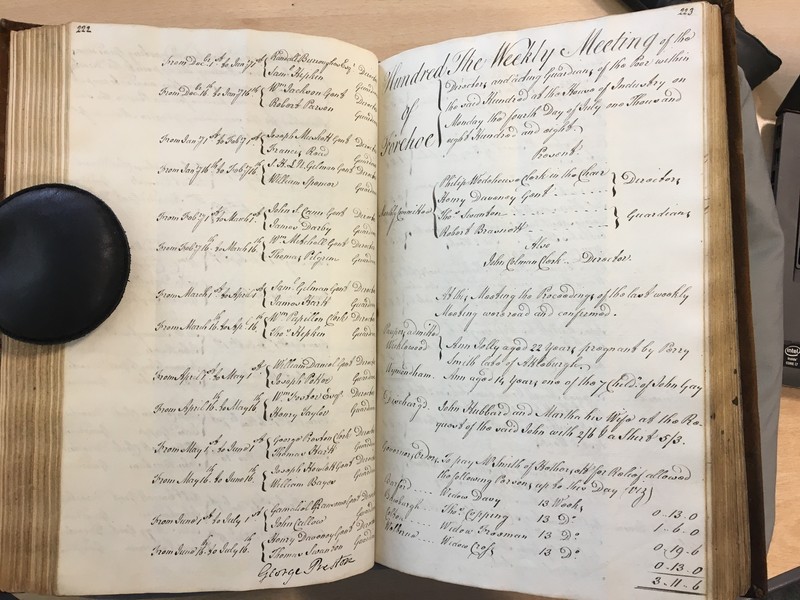 222
From Decr. 1st. to Jany 1st. Randall Burroughes Esqr. Director
Saml. Hipkin Guardian
From Decr. 16th. to Jany 16th. Wm. Jackson Gent Director
Robert Parson Guardian
From Jany 1st. to Feby 1st. Joseph Muskett Gent Director
Francis Guardian
From Jany 16th. to Feby 16th. Gilman Gent Director
William Spencer Guardian
From Feby 1st. to March 1st. John S. Cann Gent Director
James Darby Guardian
From Feby 16th. to March 16th. Wm. Mitchell Gent Director
Thomas Pilgrim Guardian
From March 1st. to April 1st. Saml. Gilman Gent Director
James Hart Guardian
From March 16th. to Apl. 16th. Wm. Papillon Clerk Director
Thos. Hipkin Guardian
From April 1st. to May 1st. William Daniel Gent Director
Joseph Guardian
From April 16th. to May 16th. Wm. Foster Esqr. Director
Henry Taylor Guardian
From May 1st. to June 1st. George Preston Clerk Director
Thomas Hart Guardian
From May 16th. to June 16th. Joseph Howlett Gent Director
William Guardian
From June 1st. to July 1st. Gent Director
John Callow Guardian
From June 16th. to July 16th. Henry Daveney Gent Director
Thomas Swanton Guardian
George Preston
223
Hundred The Weekly Meeting of the
of Directors and acting Guardians of the Poor within
Forehoe the said Hundred at the House of Industry on
Monday the fourth Day of July one Thousand
eight Hundred and eight.
Present
Philip Wodehouse Clerk in the Chair
Henry Daveney Gent Directors
Weekly Committee
Thos. Swanton
Robert Guardians
Also
John Colman Clerk Director.
At this Meeting the Proceedings of the last weekly
Meeting were read and confirmed.
Paupers admitted
Ann Jolly aged 22 Years, pregnant by Perry
Smith late of Attleburgh.
Wymondham. Ann aged 14 Years, one of the 7 Child. of John Gay
Discharg'd. John Hubbard and Martha his Wife at the Re-
quest of the said John with 2/6 & a Shirt 5/3.
Governor Orders To pay Mr. Smith of for Relief allowed
the following Persons up to this Day (Viz)
Barford Widow Davy 13 Weeks 0-13-0
Thos. Copping 13 Do. 1-6-0
Widow Freeman 13 Do. 0-19-6
Widow Cross 13 Do. 0-13-0
3-11-6
intel